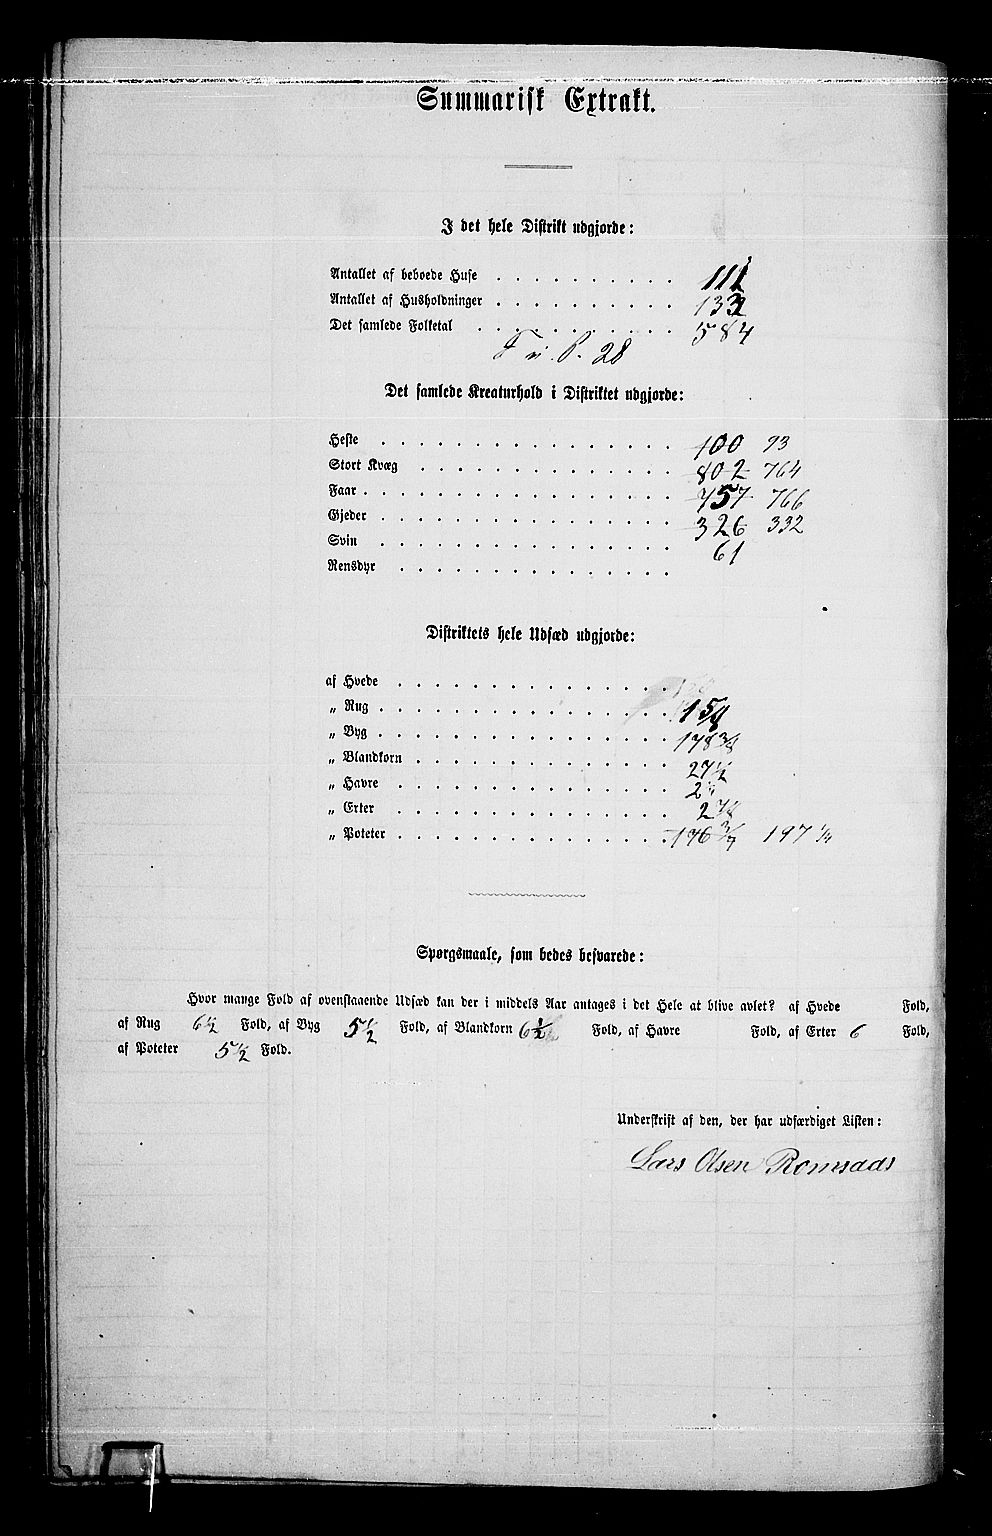 Summarisk Extrakt.
I det hele Distrikt udgjorde:
Antallet af beboede Huse . . . . . . . . . . 111
Antallet af Husholdninger . . . . . . . . . . 133
Det samlede Folketal . . . . . . . . . . . 584
28
Det samlede Kreaturhold i Distriktet udgjorde:
Heste . . . . . . . . . . . . . . . . 100 93
Stort Kvæg . . . . . . . . . . . . . . 802 764
Faar . . . . . . . . . . . . . . . . . 757 766
Gjeder . . . . . . . . . . . . . . . . 326 332
Svin . . . . . . . . . . . . . . . . 61
Rensdyr . . . . . . . . . . . . . . .
Distriktets hele Udsæd udgjorde:
af Hvede . . . . . . . . . . . . . . .
„ Rug . . . . . . . . . . . . . . . .
„ Byg . . . . . . . . . . . . . . . . 178 3/8
„ Blandkorn . . . . . . . . . . . . . . 27 1/2
„ Havre . . . . . . . . . . . . . . . 2
„ Erter . . . . . . . . . . . . . . . 2 7/8
„ Poteter . . . . . . . . . . . . . . . 196 3/4 197 1/4
Spørgsmaale, som bedes besvarede:
Hvor mange Fold af ovenstaaende Udsæd kan der i middels Aar antages i det Hele at blive avlet? af Hvede Fold,
af Rug 6 1/2 Fold, af Byg 5 1/2 Fold, af Blandkorn 6 1/2 Fold, af Havre Fold, af Erter 6 Fold,
af Poteter 5 1/2 Fold.
Underskrift af den, der har udfærdiget Listen:
Lars Olsen Romsaas